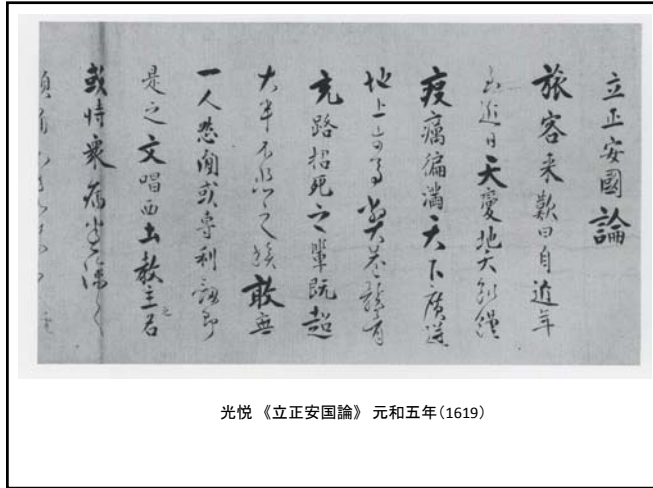 立正安國論
旅客来歎曰自近年
至近日天變地夭飢饉
疫癘徧滿天下廣迸
地上牛馬斃巷骸骨
充路招死之輩既超
大半不悲之族敢無
一人然間或専利劔即
是之文唱西土教主之名
或恃衆病悉除之
光悦 《立正安国論》 元和五年(1619)